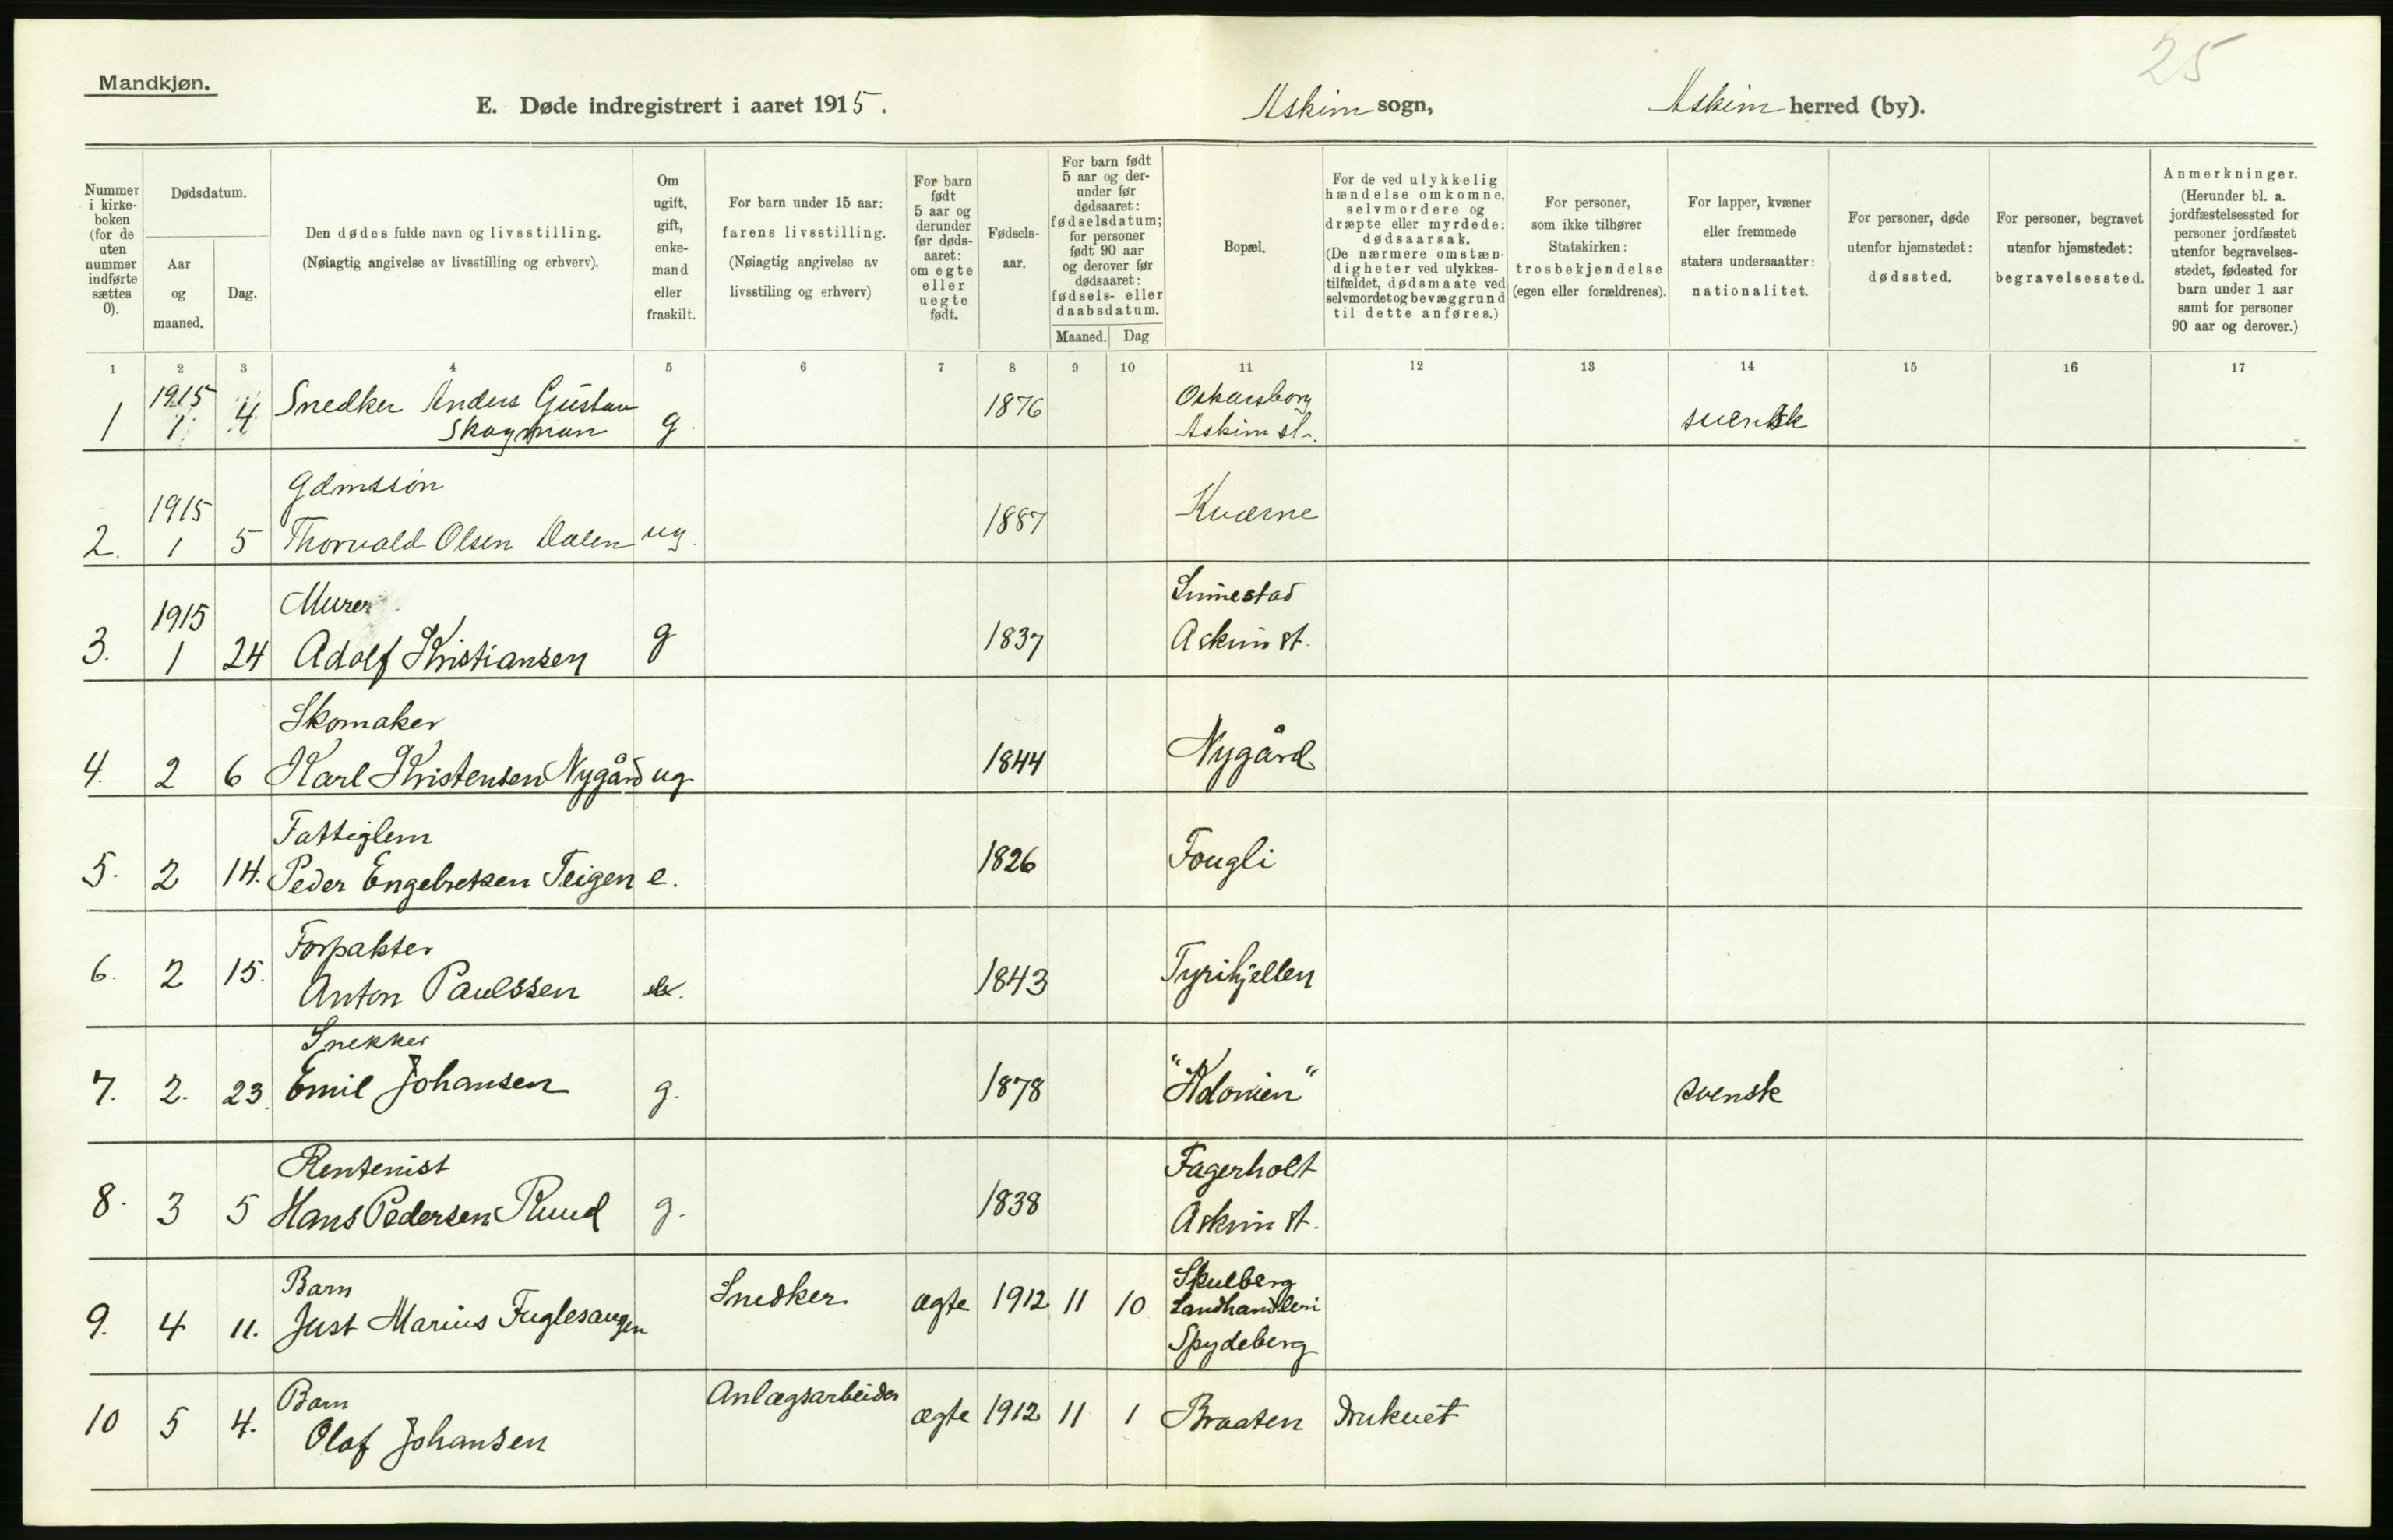 25
Mandkjøn.
E. Døde indregistrert i aaret 1915.
Askim sogn,
Askim herred (by).
Nummer i kirke-boken (for de uten nummer indførte sættes 0).
Dødsdatum.
Aar og maaned.
Dag.
Den dødes fulde navn og livsstilling.
(Nøiagtig angivelse av livsstilling og erhverv).
Om ugift, gift, enke-mand eller fraskilt.
For barn under 15 aar: farens livsstilling.
(Nøiagtig angivelse av livsstiling og erhverv)
For barn født 5 aar og derunder før døds-aaret: om egte eller uegte født.
Fødsels-aar.
For barn født 5 aar og der-under før dødsaaret: fødselsdatum; for personer født 90 aar og derover før dødsaaret: fødsels- eller daabsdatum.
Maaned. Dag
Bopæl.
For de ved ulykkelig hændelse omkomne, selvmordere og dræpte eller myrdede: dødsaarsak.
(De nærmere omstæn-digheter ved ulykkes-tilfældet, dødsmaate ved selvmord et og bevæggrund til dette anføres.)
For personer, som ikke tilhører Statskirken: trosbekjendelse (egen eller forældrenes).
For lapper, kvæner eller fremmede staters undersaatter: nationalitet.
For personer, døde utenfor hjemstedet: dødssted.
For personer, begravet utenfor hjemstedet: begravelsessted.
Anmerkninger.
(Herunder bl. a. jordfæstelsessted for personer jordfæstet utenfor begravelses-stedet, fødested for barn under 1 aar samt for personer 90 aar og derover.)
1 2 3 4 5 6 7 8 9 10 11 12 13 14 15 16 17
1915 Snedker Anders Gustav 1876 Oskarsborg
1 1 4 Skogman g. Askim st. svensk
Gdmssøn
1915 1887 Kværne
2. 1 5 Thorvald Olsen Dalen ug.
Murer Linnestad
1915
3. 1 24 Adolf Kristiansen g 1837 Askim st.
Skomaker
4. 2 6 Karl Kristensen Nygård ug 1844 Nygård
Fattiglem
5. 2 14. Peder Engebretsen Teigen e. 1826 Fougli
Forpakter
6. 2 15. Anton Paulssen 1843 Tyrihjellen
Snekker
7. 2. 23. Emil Johansen g. 1878 "Kolonien" svensk
Rentenist Fagerholt
8. 3 5 Hans Pedersen Ruud g. 1838 Askim st.
Barn Snedker Skulberg
9. 4 11. Just Marius Fuglesangen ægte 1912 11 10 Landhandleri
Spydeberg
Barn Anlægsarbeider
10 5 4. Olaf Johansen ægte 1912 11 1 Braaten Druknet